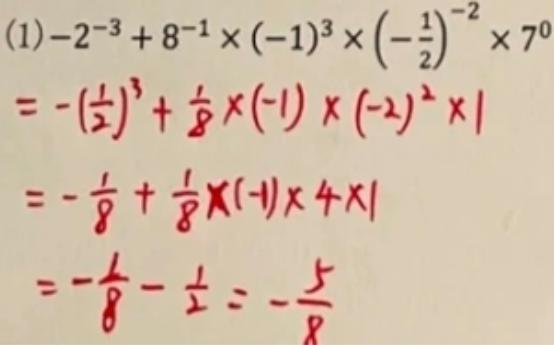 (1)−2⁻³ + 8⁻¹ × (−1)³ × (−1/2)⁻² × 7⁰
= −(1/2)³ + 1/8 × (−1) × (−2)² × 1
= −1/8 + 1/8 × (−1) × 4 × 1
= −1/8 − 1/2 = −5/8